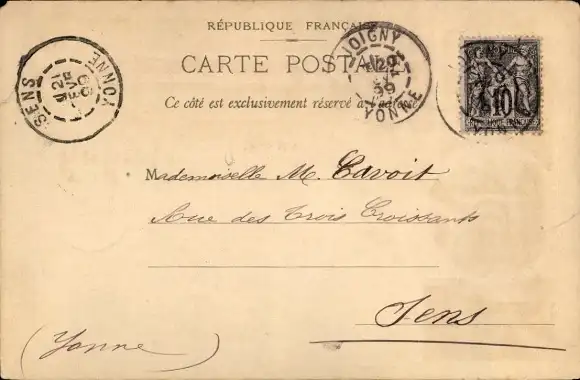 RÉPUBLIQUE FRANÇAISE
CARTE POSTALE
Ce côté est exclusivement réservé à l'adresse
JOIGNY
YONNE
SENS
YONNE
21
FEVR
99
10
Mademoiselle M. Cavoit
Rue des Trois Croissants
Sens
(Yonne)